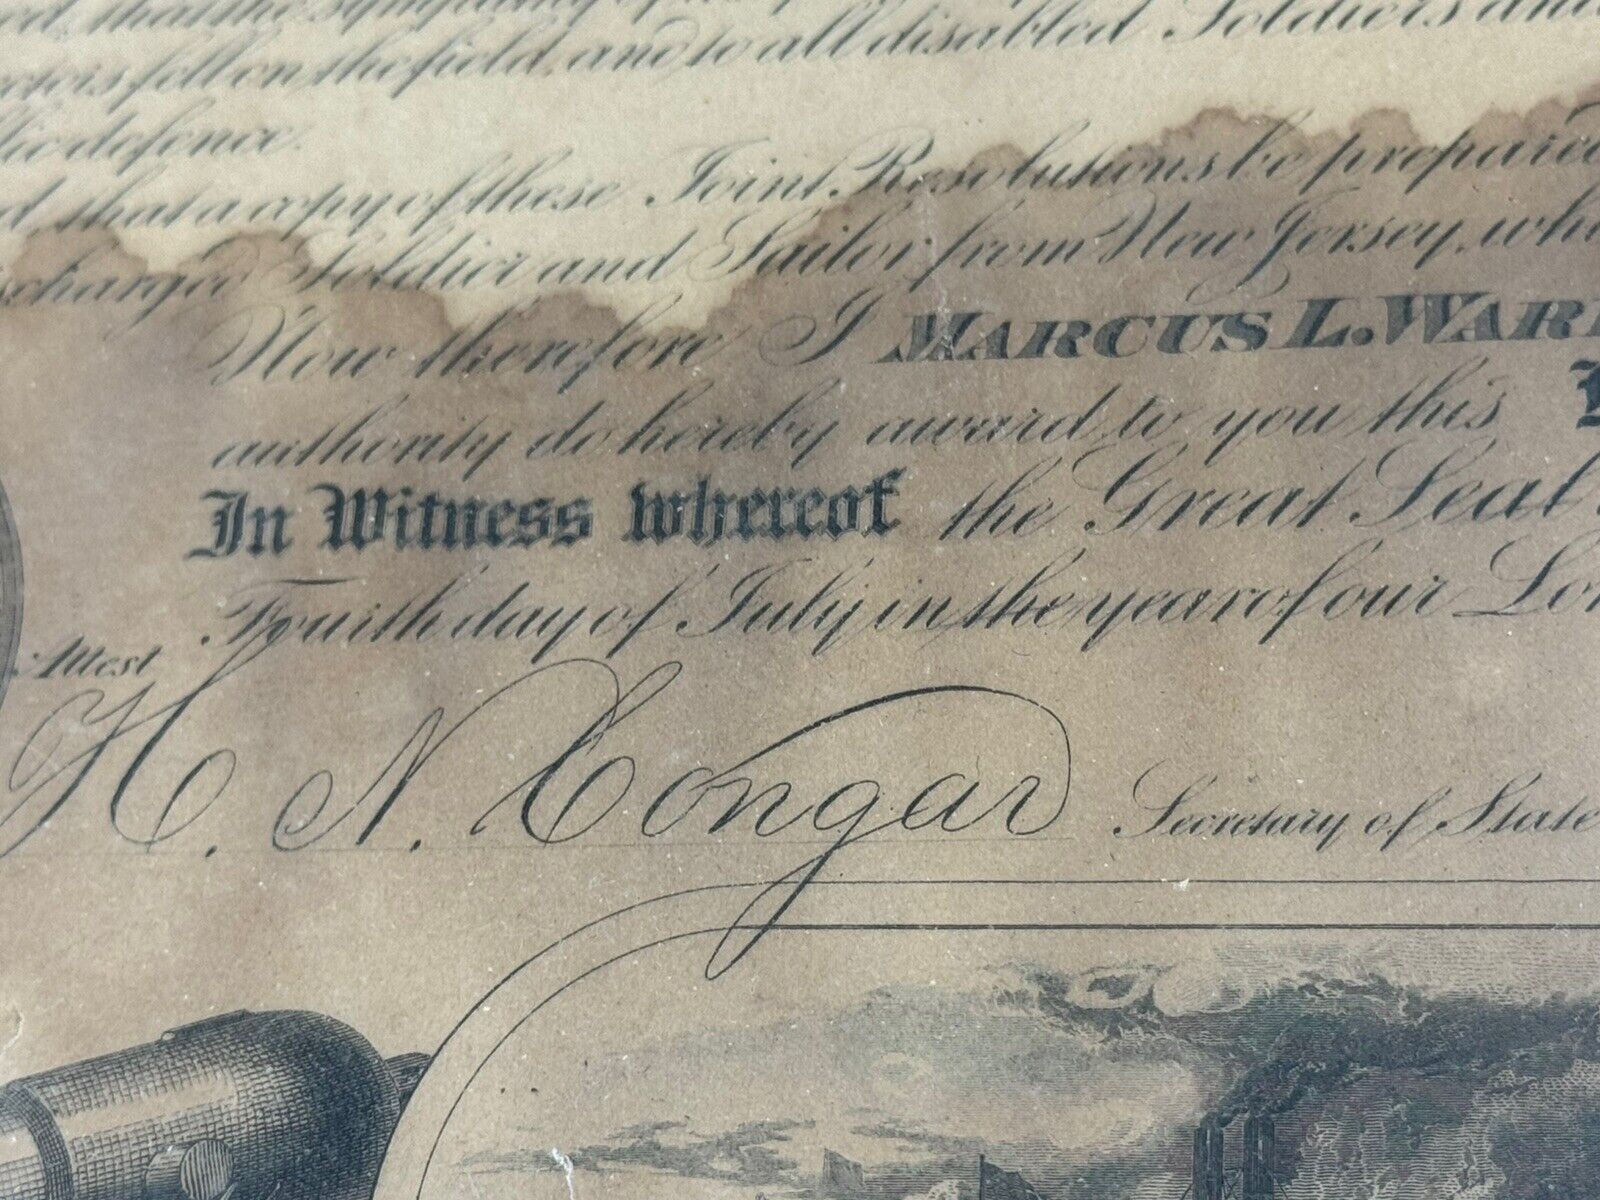 that the sympathy of
fell on the field, and to all disabled Soldiers and
defence.
that a copy of these Joint Resolutions be prepared
Soldier and Sailor from New Jersey, who
Now therefore I MARCUS L. WAR
authority do hereby award to you this
In Witness whereof the Great Seal
Fourth day of July in the year of our Lo
Attest
H. N. Congar Secretary of State